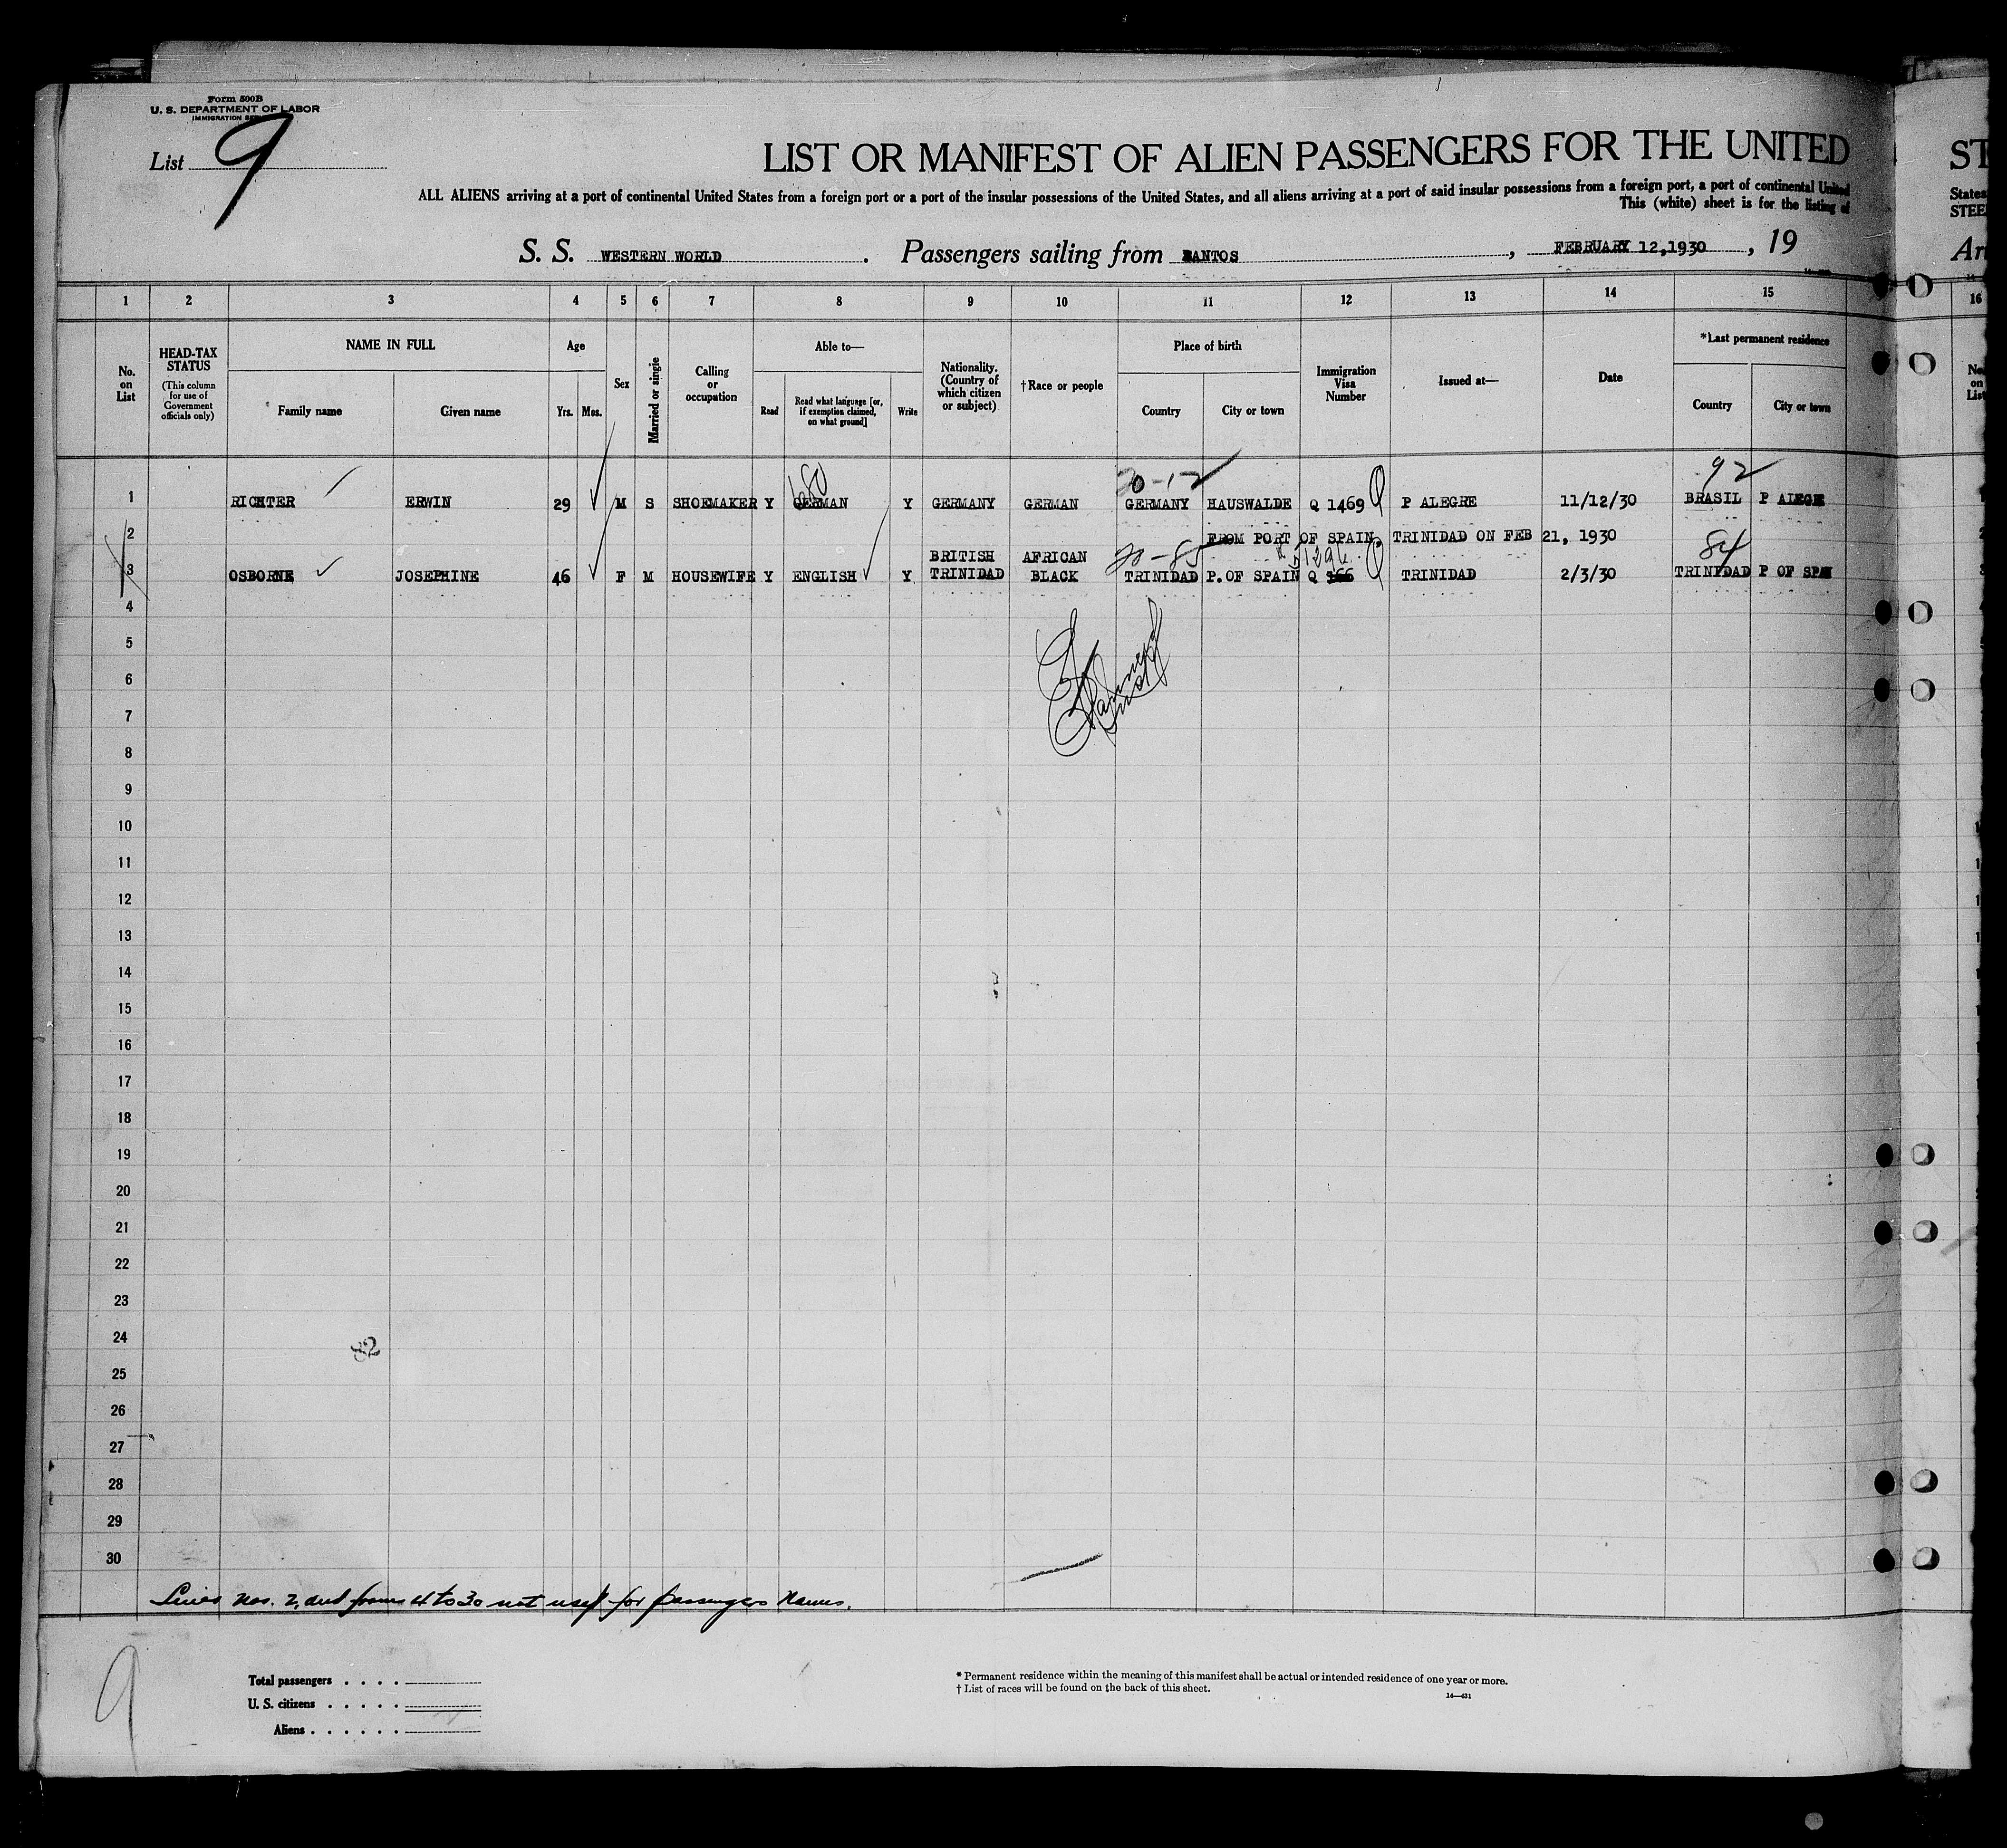 Form 500B
U. S. DEPARTMENT OF LABOR
IMMIGRATION
List 9
LIST OR MANIFEST OF ALIEN PASSENGERS FOR THE UNITED
ALL ALIENS arriving at a port of continental United States from a foreign port or a port of the insular possessions of the United States, and all aliens arriving at a port of said insular possessions from a foreign port, a port of continental United
This (white) sheet is for the listing of
S. S. WESTERN WORLD . Passengers sailing from SANTOS , FEBRUARY 12,1930 , 19
1 2 3 4 5 6 7 8 9 10 11 12 13 14 15
No. on List
HEAD-TAX STATUS
(This column for use of Government officials only)
NAME IN FULL
Family name Given name
Age
Yrs. Mos.
Sex
Married or single
Calling or occupation
Able to—
Read
Read what language [or, if exemption claimed, on what ground]
Write
Nationality. (Country of which citizen or subject)
†Race or people
Place of birth
Country City or town
Immigration Visa Number
Issued at—
Date
*Last permanent residence
Country City or town
680 20-12 92
1 RICHTER ERWIN 29 M S SHOEMAKER Y GERMAN Y GERMANY GERMAN GERMANY HAUSWALDE Q 1469 P ALEGRE 11/12/30 BRASIL P ALEGRE
2 FROM PORT OF SPAIN, TRINIDAD ON FEB 21, 1930
BRITISH AFRICAN 20-85 1296 84
3 OSBORNE JOSEPHINE 46 F M HOUSEWIFE Y ENGLISH Y TRINIDAD BLACK TRINIDAD P.OF SPAIN Q 166 TRINIDAD 2/3/30 TRINIDAD P OF SPAIN
4
5
6
7
8
9
10
11
12
13
14
15
16
17
18
19
20
21
22
23
24
82
25
26
27
28
29
30
Lines Nos. 2, and from 4 to 30 not used for passengers names.
9
Total passengers . . . .
U. S. citizens . . . . .
Aliens . . . . . .
* Permanent residence within the meaning of this manifest shall be actual or intended residence of one year or more.
† List of races will be found on the back of this sheet.
14—631
ST
States
STEE
Arr
16
No. on List